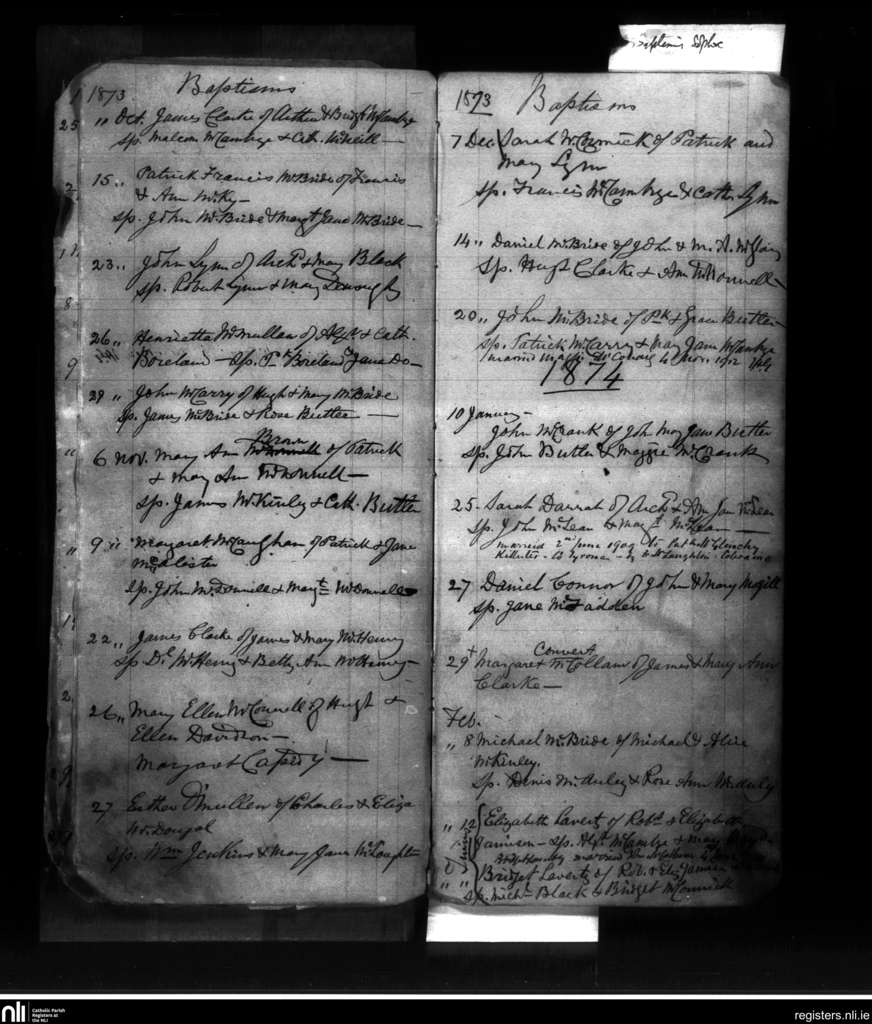 Baptisms
1873 Baptisms
25 " Oct. James Clarke of Arthur & Bridgt McCambge
Sp. Malcom McCambge & Cath. McNeill —
15 " Patrick Francis McBride of Francis
& Ann McKy —
Sp. John McBride & Margt Jane McBride —
23 " John Lynn of Archd & Mary Black
Sp. Robert Lynn & Mary
26 " Henrietta McMullan of Alexr & Cath.
Boreland — Sp. Pk Boreland & Jane Do —
29 " John McCarry of Hugh & Mary McBride
Sp. James McBride & Rose Butler —
Brown
6 Nov. Mary Ann McConnell of Patrick
& Mary Ann McConnell —
Sp. James McKinley & Cath. Butler
9 " Margaret McCaughan of Patrick & Jane
McAlister
Sp. John McDonnell & Margt McDonnell
22 " James Clarke of James & Mary McHenry
Sp. Dl McHenry & Betty Ann McHenry —
26 " Mary Ellen McConnell of Hugh &
Ellen Davidson —
Margaret Cassidy —
27 Esther McMullen of Charles & Eliza
McDougal
Sp. Wm Jenkins & Mary Jane McLoughlin
1873 Baptisms
7 Dec Sarah McCormick of Patrick and
Mary Lynn
Sp. Francis McCambge & Cath. Lynn
14 " Daniel McBride of John & M. A.
Sp. Hugh Clarke & Ann McConnell —
20 " John McBride of Pk & Grace Butler
Sp. Patrick McCarry & Mary Jane McCambge
married Nov. 1912
1874
10 January —
John McCrank of John Mary Jane Butler
Sp. John Butler & Maggie McCrank
25 - Sarah Darrah of Archd & Ann Jan McLean
Sp. John McLean & Margt McLean —
married 2nd June 1909 to Patk McGlinchy
Killeter - Co Tyrone - by McLaughlin - Coleraine
27 Daniel Connor of John & Mary Magill
Sp. Jane McFadden
Convert
29th Margaret McCollam of James & Mary Ann
Clarke —
Feb. —
" 8 Michael McBride of Michael & Alice
McKinley.
Sp. Denis McAuley & Rose Ann McAuly
" 12 Elizabeth Laverty of Robt & Elizabeth
Jamison — Sp. Alexr McCambge & Mary
Twins
" " Bridget Laverty of Rob. & Eliz Jamison
Sp. Michl Black & Bridget McCormick
nli
Catholic Parish
Registers at
the NLI
registers.nli.ie